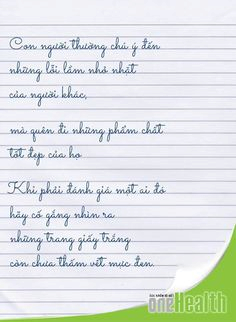 Con người thường chú ý đến
những lỗi lầm nhỏ nhặt
của người khác,
mà quên đi những phẩm chất
tốt đẹp của họ
Khi phải đánh giá một ai đó
hãy cố gắng nhìn ra
những trang giấy trắng
còn chưa thấm vết mực đen.
oneHealth